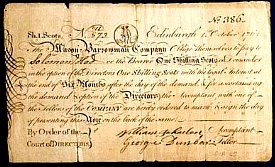 No. 386.
Sh. 1. Scots
Edinburgh 1 October 17
The Mason Barrowman Company Oblige Themselves to pay to
or the Bearer One Shilling Scots on demand or
in the option of the Directors One Shilling Scots with the Interest at the
end of Six Months after the day of the demand & for ascertaining
the demand & option of the Directors the Accomptant with one of
the Tellers of the COMPANY are hereby ordered to mark & sign the day
of presenting this Note on the back of the same.
By Order of the
Court of DIRECTORS
Accomptant
George Teller